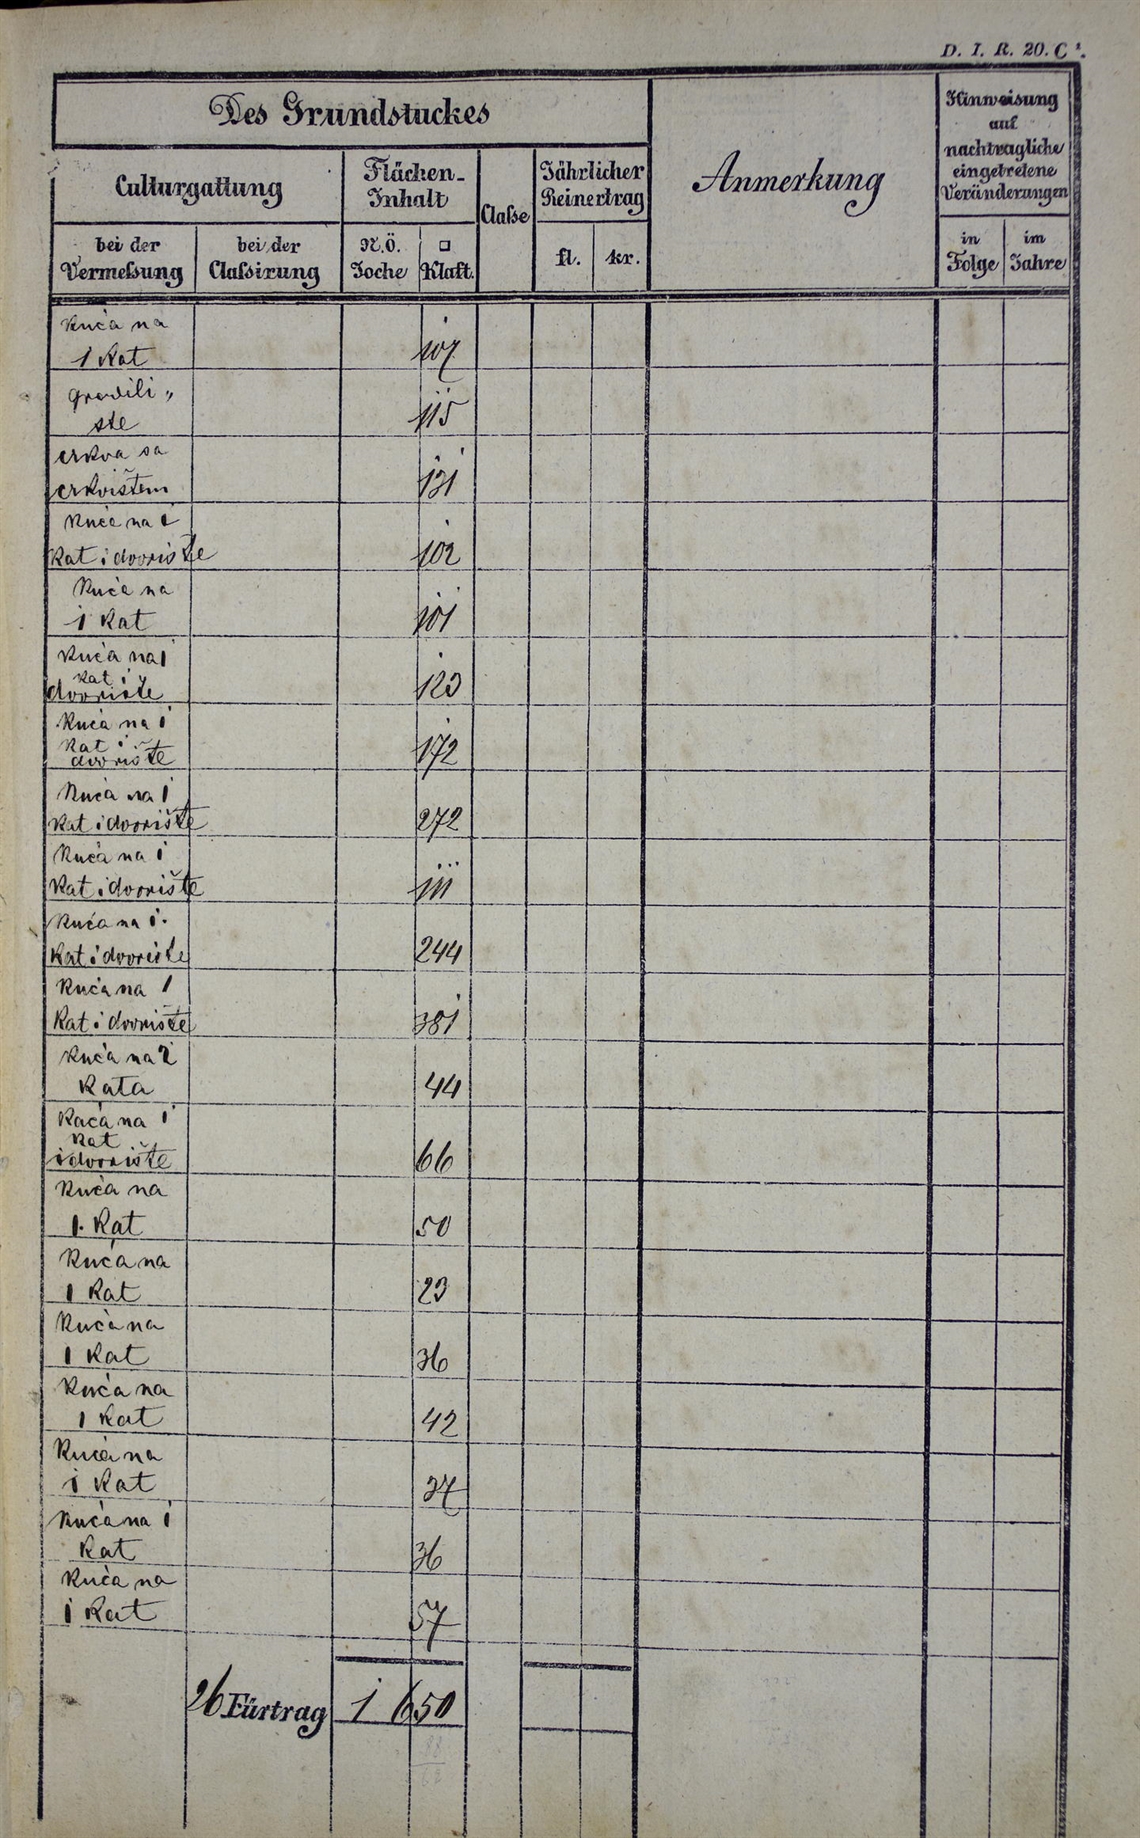 D. I. R. 20. C².
Des Grundstückes
Anmerkung
Hinweisung
auf
nachtragliche
eingetretene
Veränderungen
Culturgattung
Flächen-
Inhalt
Classe
Jährlicher
Reinertrag
bei der
Vermeßung
bei der
Claßirung
N.Ö.
Joche
□
Klaft.
fl.
kr.
in
Folge
im
Jahre
Kuća na
1 Kat
107
gradili„
ste
115
crkva sa
crkvištem
131
Kuća na 1
Kat i dvorište
102
Kuća na
1 Kat
101
Kuća na 1
Kat i
dvorište
123
Kuća na 1
Kat i
dvorište
172
Kuća na 1
Kat i dvorište
272
Kuća na 1
Kat i dvorište
111
Kuća na 1.
Kat i dvorište
244
Kuća na 1
Kat i dvorište
381
Kuća na 2
Kata
44
Kuća na 1
Kat
i dvorište
66
Kuća na
1. Kat
50
Kuća na
1 Kat
23
Kuća na
1 Kat
36
Kuća na
1 Kat
42
Kuća na
1 Kat
37
Kuća na 1
Kat
36
Kuća na
1 Kat
57
26 Fürtrag
1 650